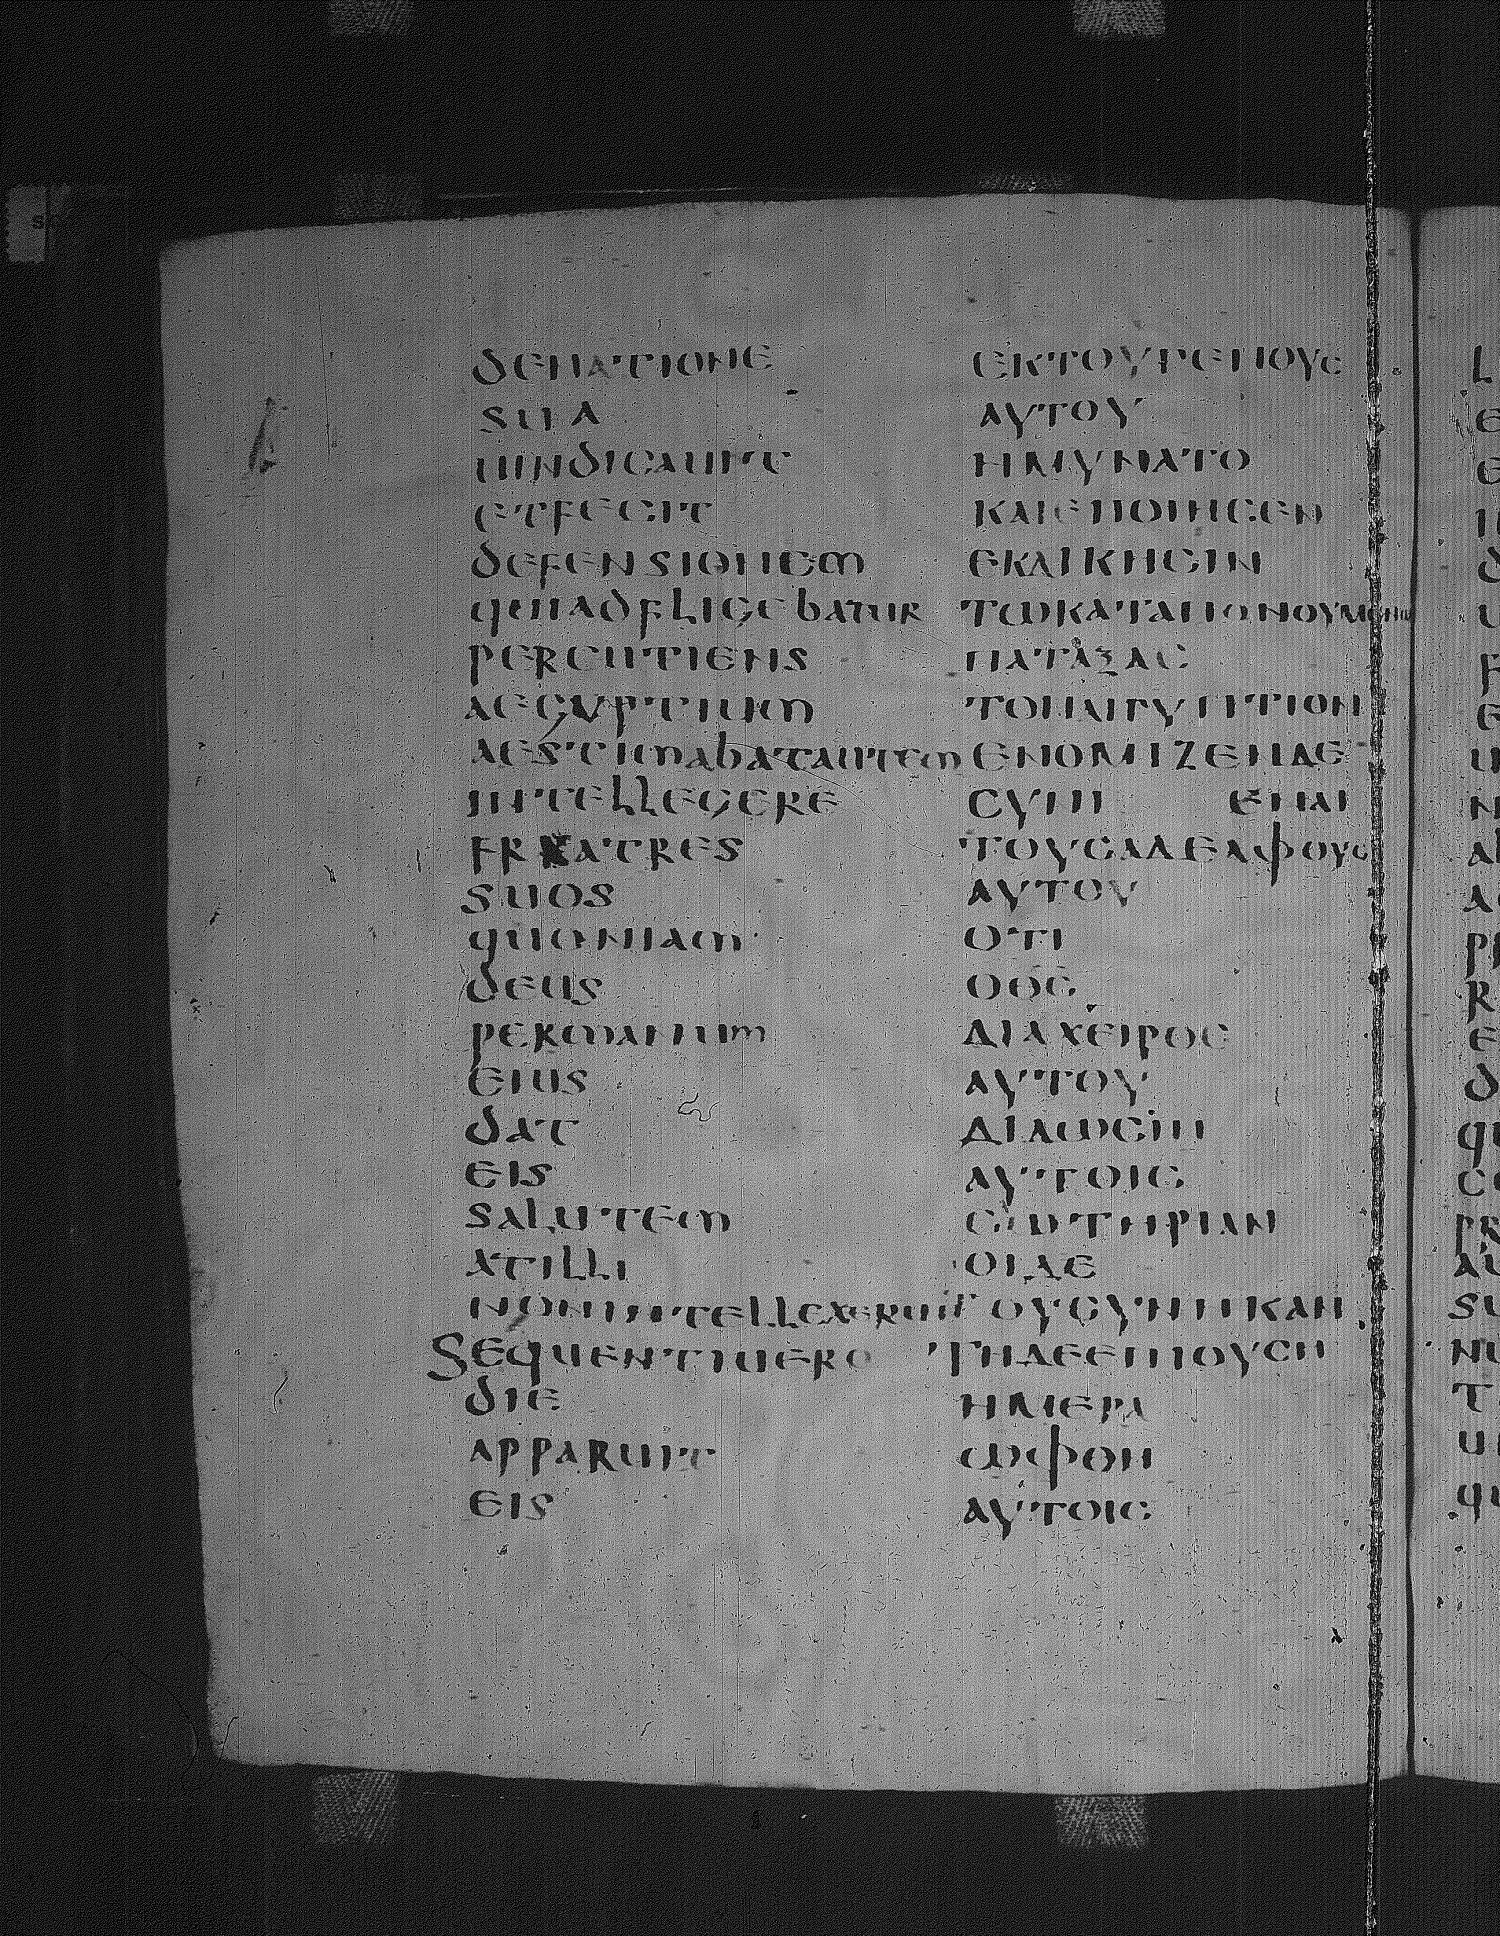 denatione εκτουγενουϲ
sua αυτου
uindicauit ημυνατο
etfecit καιεποιηϲεν
defensionem εκδικηϲιν
quiadfligebatur τωκαταπονουμενω
percutiens παταξαϲ
aegyptium τοναιγυπτιον
aestimabatautem ενομιζενδε
intellegere ϲυνι εναι
fratres τουϲαδελφουϲ
suos αυτου
quoniam οτι
deus οθϲ
permanum διαχειροϲ
eius αυτου
dat διδωϲιν
eis αυτοιϲ
salutem ϲωτηριαν
atilli οιδε
nonintellexerunt ουϲυνηκαν
Sequentiuero Τηδεεπιουϲη
die ημερα
apparuit ωφθη
eis αυτοιϲ